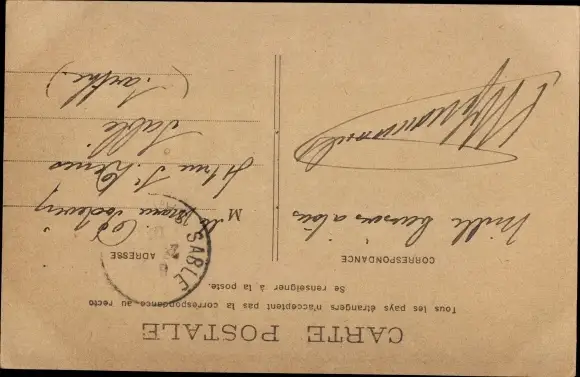 CARTE POSTALE
Tous les pays étrangers n'acceptent pas la correspondance au recto
Se renseigner à la poste.
CORRESPONDANCE
Mille baisers a tous
ADRESSE
SABLÉ
M
rue St Denis
Sablé
(Sarthe)